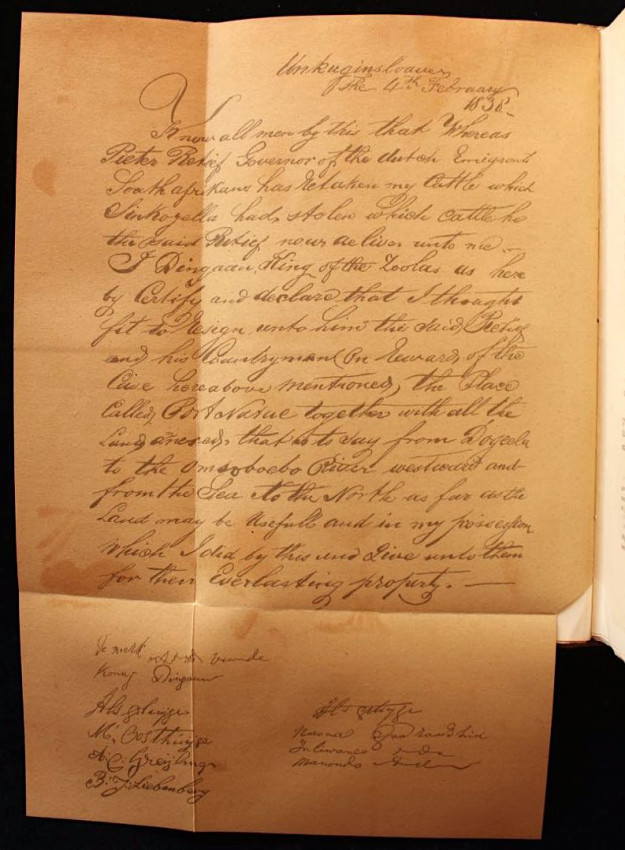 Unkuginsloave
the 4th February
1838
Know all men by this that Whereas
Pieter Retief Governor of the dutch Emigrant
South afrikans has Retaken my Cattle which
Sinkoyella had stolen which cattle he
the said Retief now deliver unto me.—
I Dingaan, King of the Zoolas as here
by Certify and declare that I thought
fit to Resign unto him the said Retief
and his Countryman (on Reward of the
Case hereabove mentioned, the Place
Called, Port Natal together with all the
Land annexed, that is to say from Dogeela
to the Omsoboebo River westward and
from the Sea to the North as far as the
Land may be Usefull and in my possession
Which I did by this and Give unto them
for their Everlasting property.—
De merk
Konig Dingaan
Als getuige
M. Oosthuyse
A. C. Greyling
B. J. Liebenberg
Als getuyge
Manondo